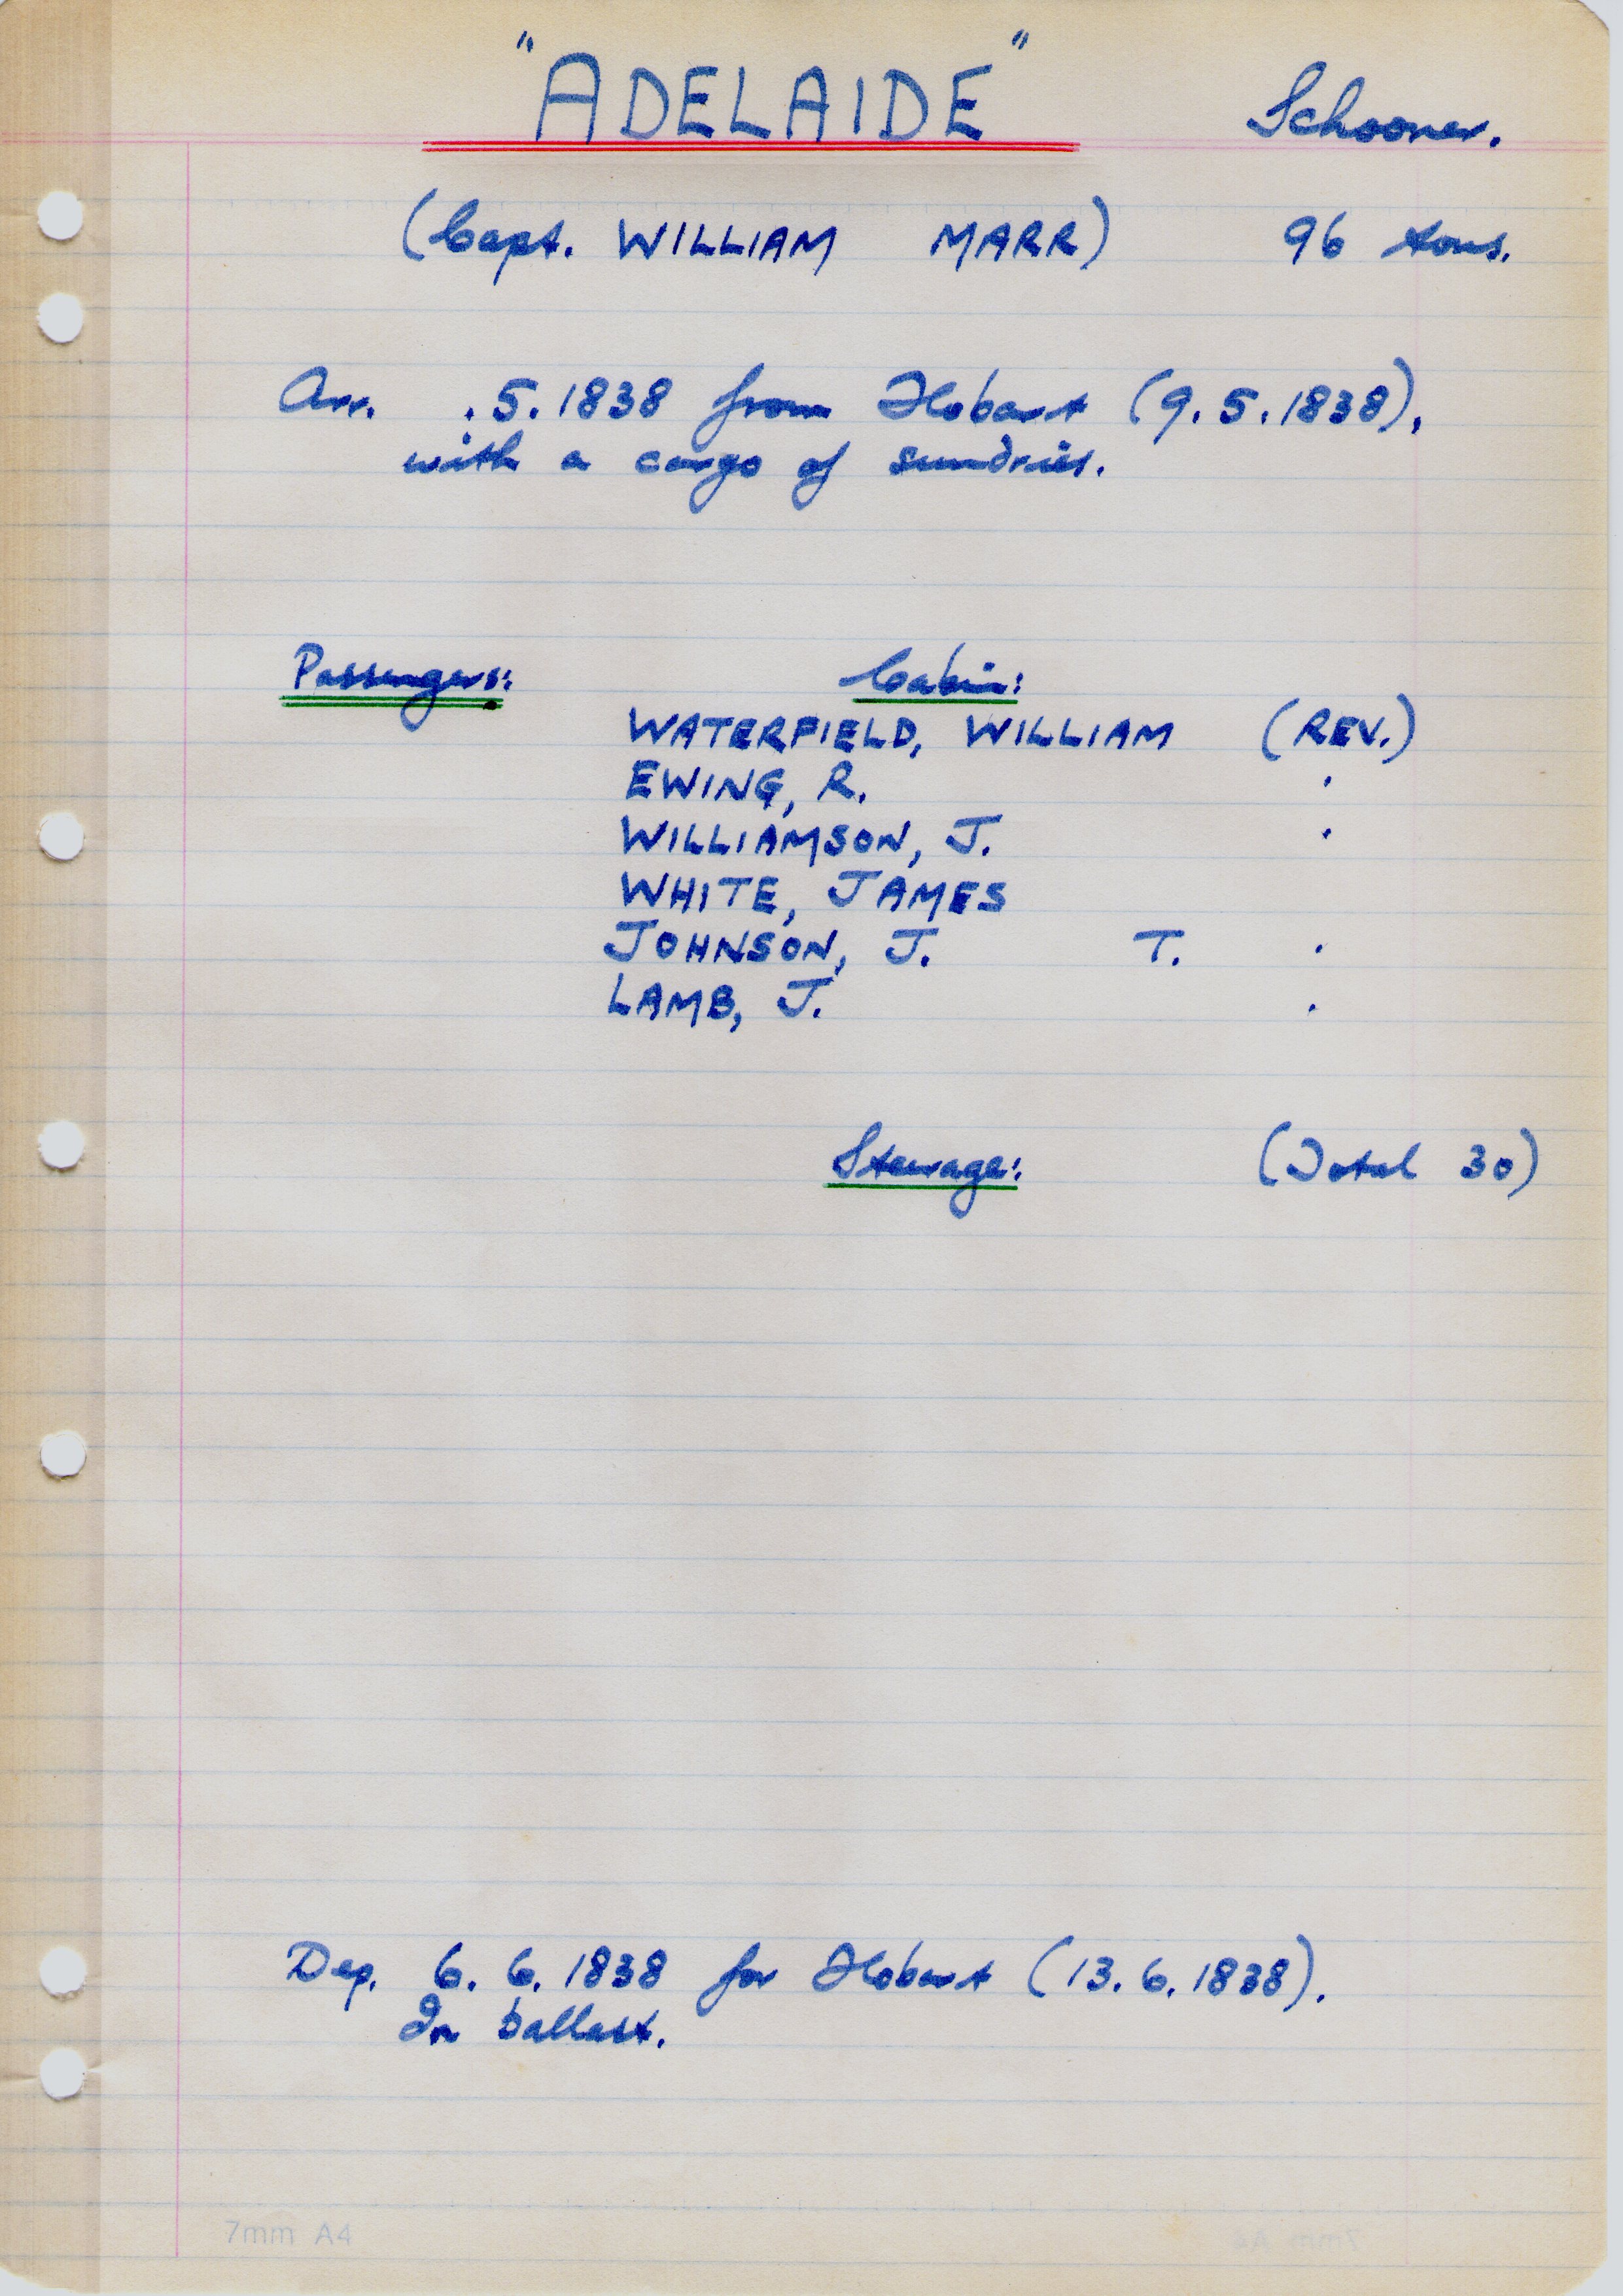 "ADELAIDE" Schooner.
(Capt. WILLIAM MARR) 96 tons.
Arr. .5.1838 from Hobart (9.5.1838),
with a cargo of sundries.
Passengers: Cabin:
WATERFIELD, WILLIAM (REV.)
EWING, R. .
WILLIAMSON, J. .
WHITE, JAMES
JOHNSON, J. T. .
LAMB, J. .
Steerage: (Total 30)
Dep. 6.6.1838 for Hobart (13.6.1838).
In ballast.
7mm A4